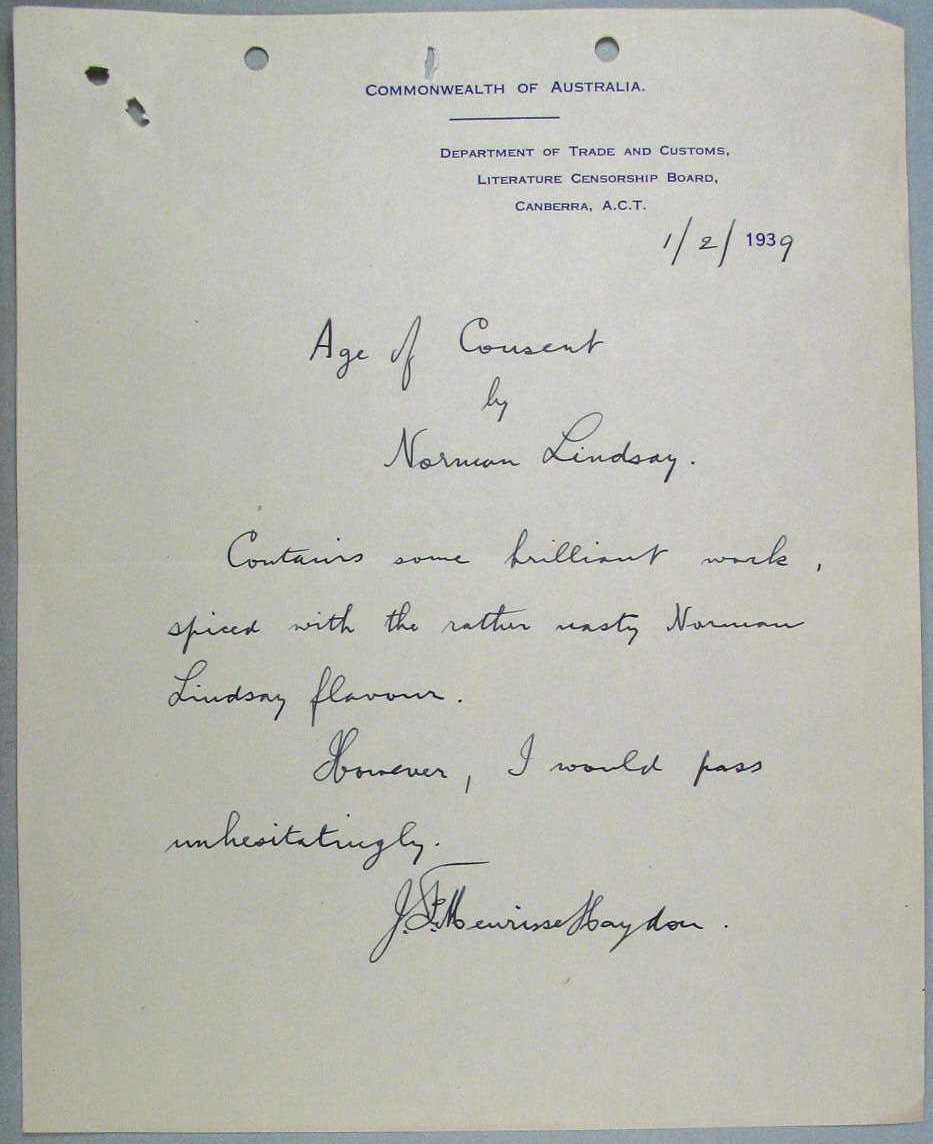 COMMONWEALTH OF AUSTRALIA.
DEPARTMENT OF TRADE AND CUSTOMS,
LITERATURE CENSORSHIP BOARD,
CANBERRA, A.C.T.
1/2/1939
Age of Consent
by
Norman Lindsay.
Contains some brilliant work,
spiced with the rather nasty Norman
Lindsay flavour.
However, I would pass
unhesitatingly.
J.F.MeurisseHaydon.